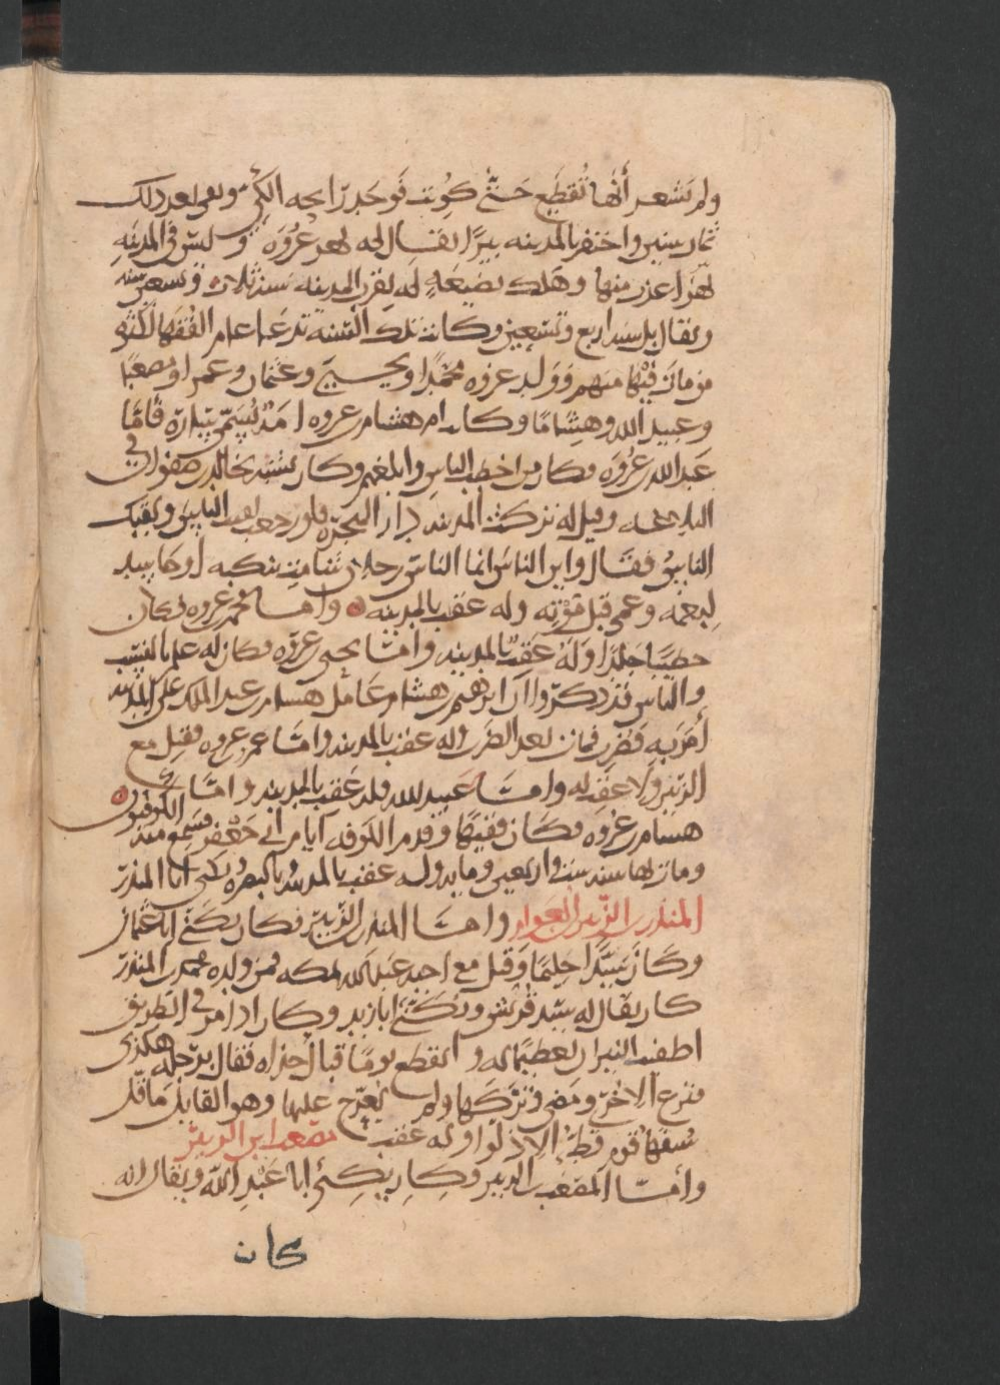 ولم يشعر أنها تقطع حتى كويت فوجد رايحه الكي وبقى بعد ذلك
ثمان سنين واحتفر بالمدينه بيرا يقال لها بير عروه وليس في المدينه
بيرا اعذب منها وهلك بضيعة له بقرب المدينه سنة ثلاث وتسعين سنه
ويقال بل سنة اربع وتسعين وكانت تلك السنة تدعا عام الفقها لكثره
من مات فيها منهم وولد عروه محمدا ويحيى وعثمان وعمرا ومصعبا
وعبيد الله وهشاما وكانت ام هشام بن عروه امة تسمى سارة فأما
عبد الله بن عروه فكان من اخطب الناس وابلغهم وكان يشبه بخالد بن صفوان في
البلاغه وقيل له تركت المدينه دار الهجره فلو رجعت لقيت الناس ولقيك
الناس فقال واين الناس انما الناس رجلان شامت بنكبه او حاسد
لنعمه وعمى قبل موته وله عقب بالمدينه واما محمد بن عروه فكان
خطيبا جلدا وله عقب بالمدينه وامّا يحيى بن عروه فكان له علم بالنسب
والناس قد ذكروا ان ابرهيم بن هشام عامل هشام بن عبد الملك على المدينه
أمر به فضرب فمات بعد الضرب وله عقب بالمدينه وامّا عمر بن عروه فقتل مع
الزبير ولا عقب له وامّا عبيد الله فله عقب بالمدينه وامّا
هشام بن عروه فكان فقيها وقدم الكوفه ايام ابي جعفر فسمع منه الكوفيون
ومات بها سنة ست واربعين وماية وله عقب بالمدينه وبالبصره يكنى ابا المنذر
المنذر بن الزبير بن العوام وامّا المنذر بن الزبير فكان يكنى ابا عثمان
وكان سيدا حليما وقتل مع اخيه عبد الله بمكه فمن ولده محمد بن المنذر
كان يقال له سيد قريش ويكنى ابا زيد وكان اذا مر في الطريق
اطفيت النيران تعظيما له وانقطع يوما قبال حذاه فقال برجله هكذى
فنزع الاخرى ومضى وتركها ولم يعرج عليها وهو القايل ما قل
سفها قوم قط الا ذلوا وله عقب مصعب ابن الزبير
وأمّا المصعب بن الزبير وكان يكنى ابا عبد الله ويقال انه
كان